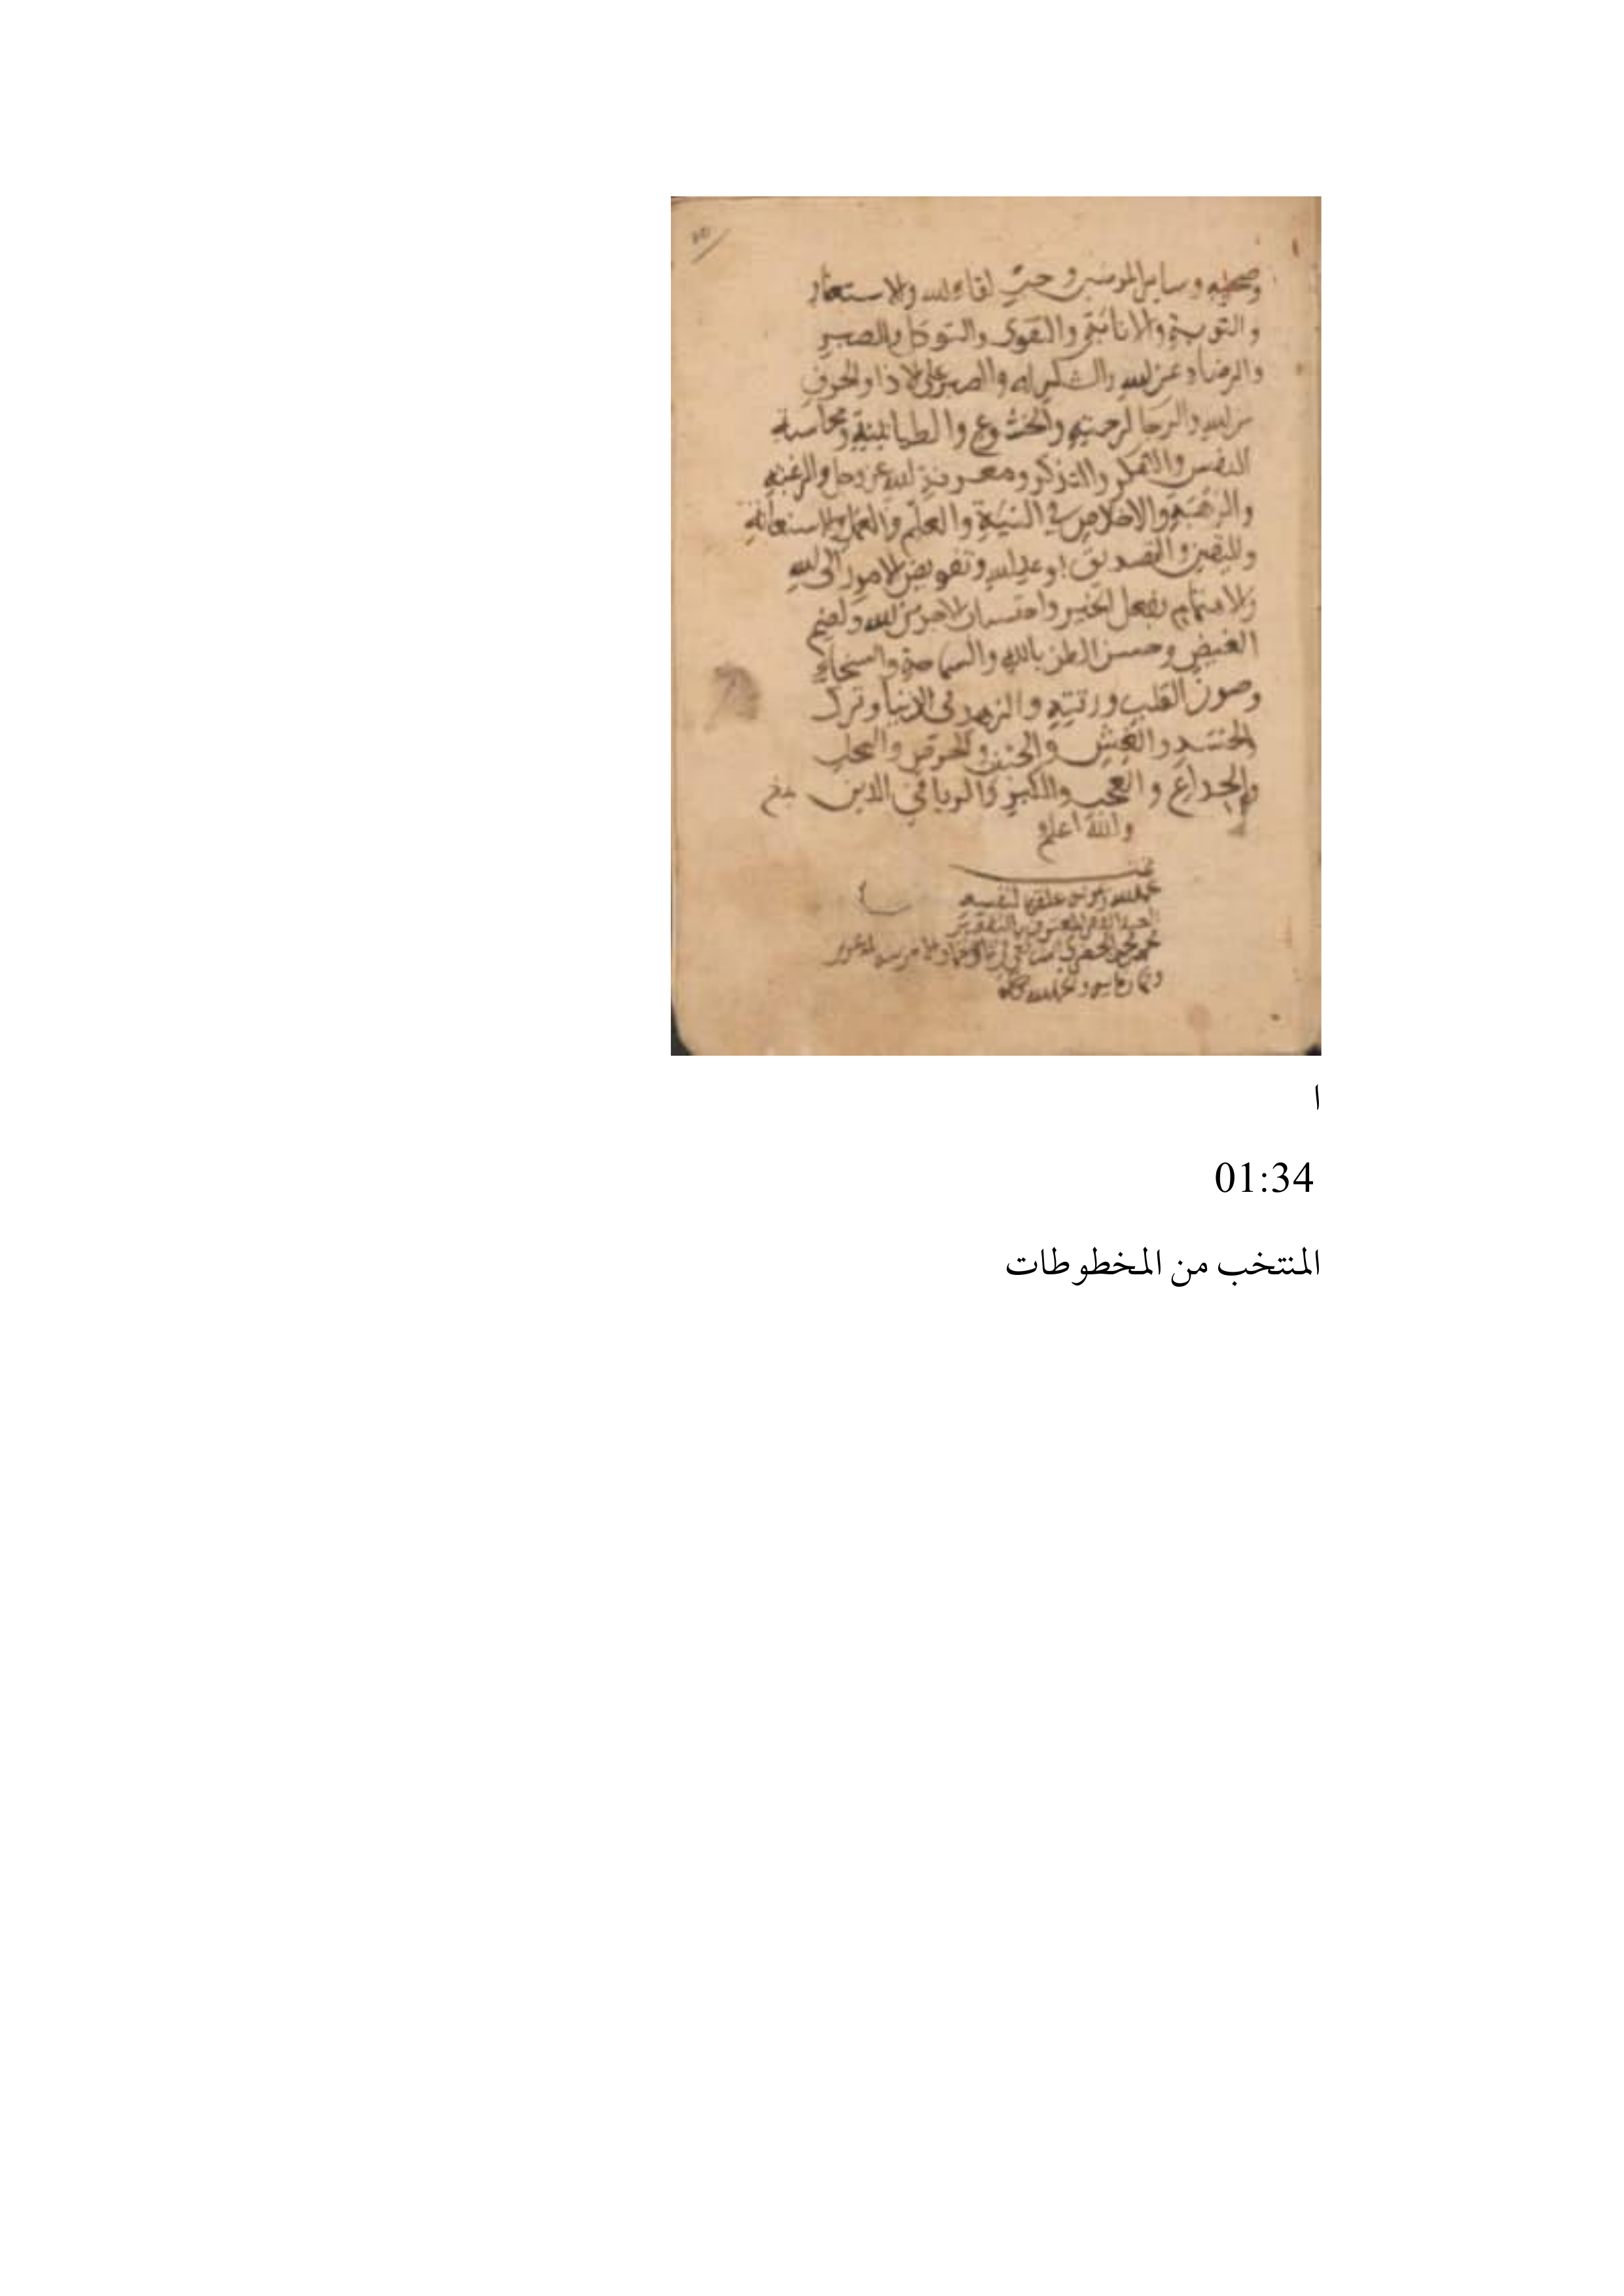 وصحبه وسائر المومنين وحب لقاء الله والاستغفار
والتوبة والانابة والتقوى والتوكل والصبر
والرضا عن الله والشكر له والصبر على الاذا والخوف
من الله والرجا لرحمته والخشوع والطمانينة ومحاسبة
النفس والتفكر والتذكر ومعرفة الله عز وجل والرغبة
والرهبة والاخلاص في النية والعلم والعمل والاستعانة
واليقين والتصديق بوعد الله وتفويض الامور الى الله
والاهتمام بفعل الخير واحتساب الاجر من الله وكضم
الغيض وحسن الظن بالله والسماحة والسخاء
وصون القلب ورقته والزهد في الدنيا وترك
الحسد والغش والحرص والبخل
والخداع والعجب والكبر والريا في الدين
والله اعلم
تمت
علقها لنفسه
المعترف بالتقصير
محمد
والحمد لله
ا
01:34
المنتخب من المخطوطات